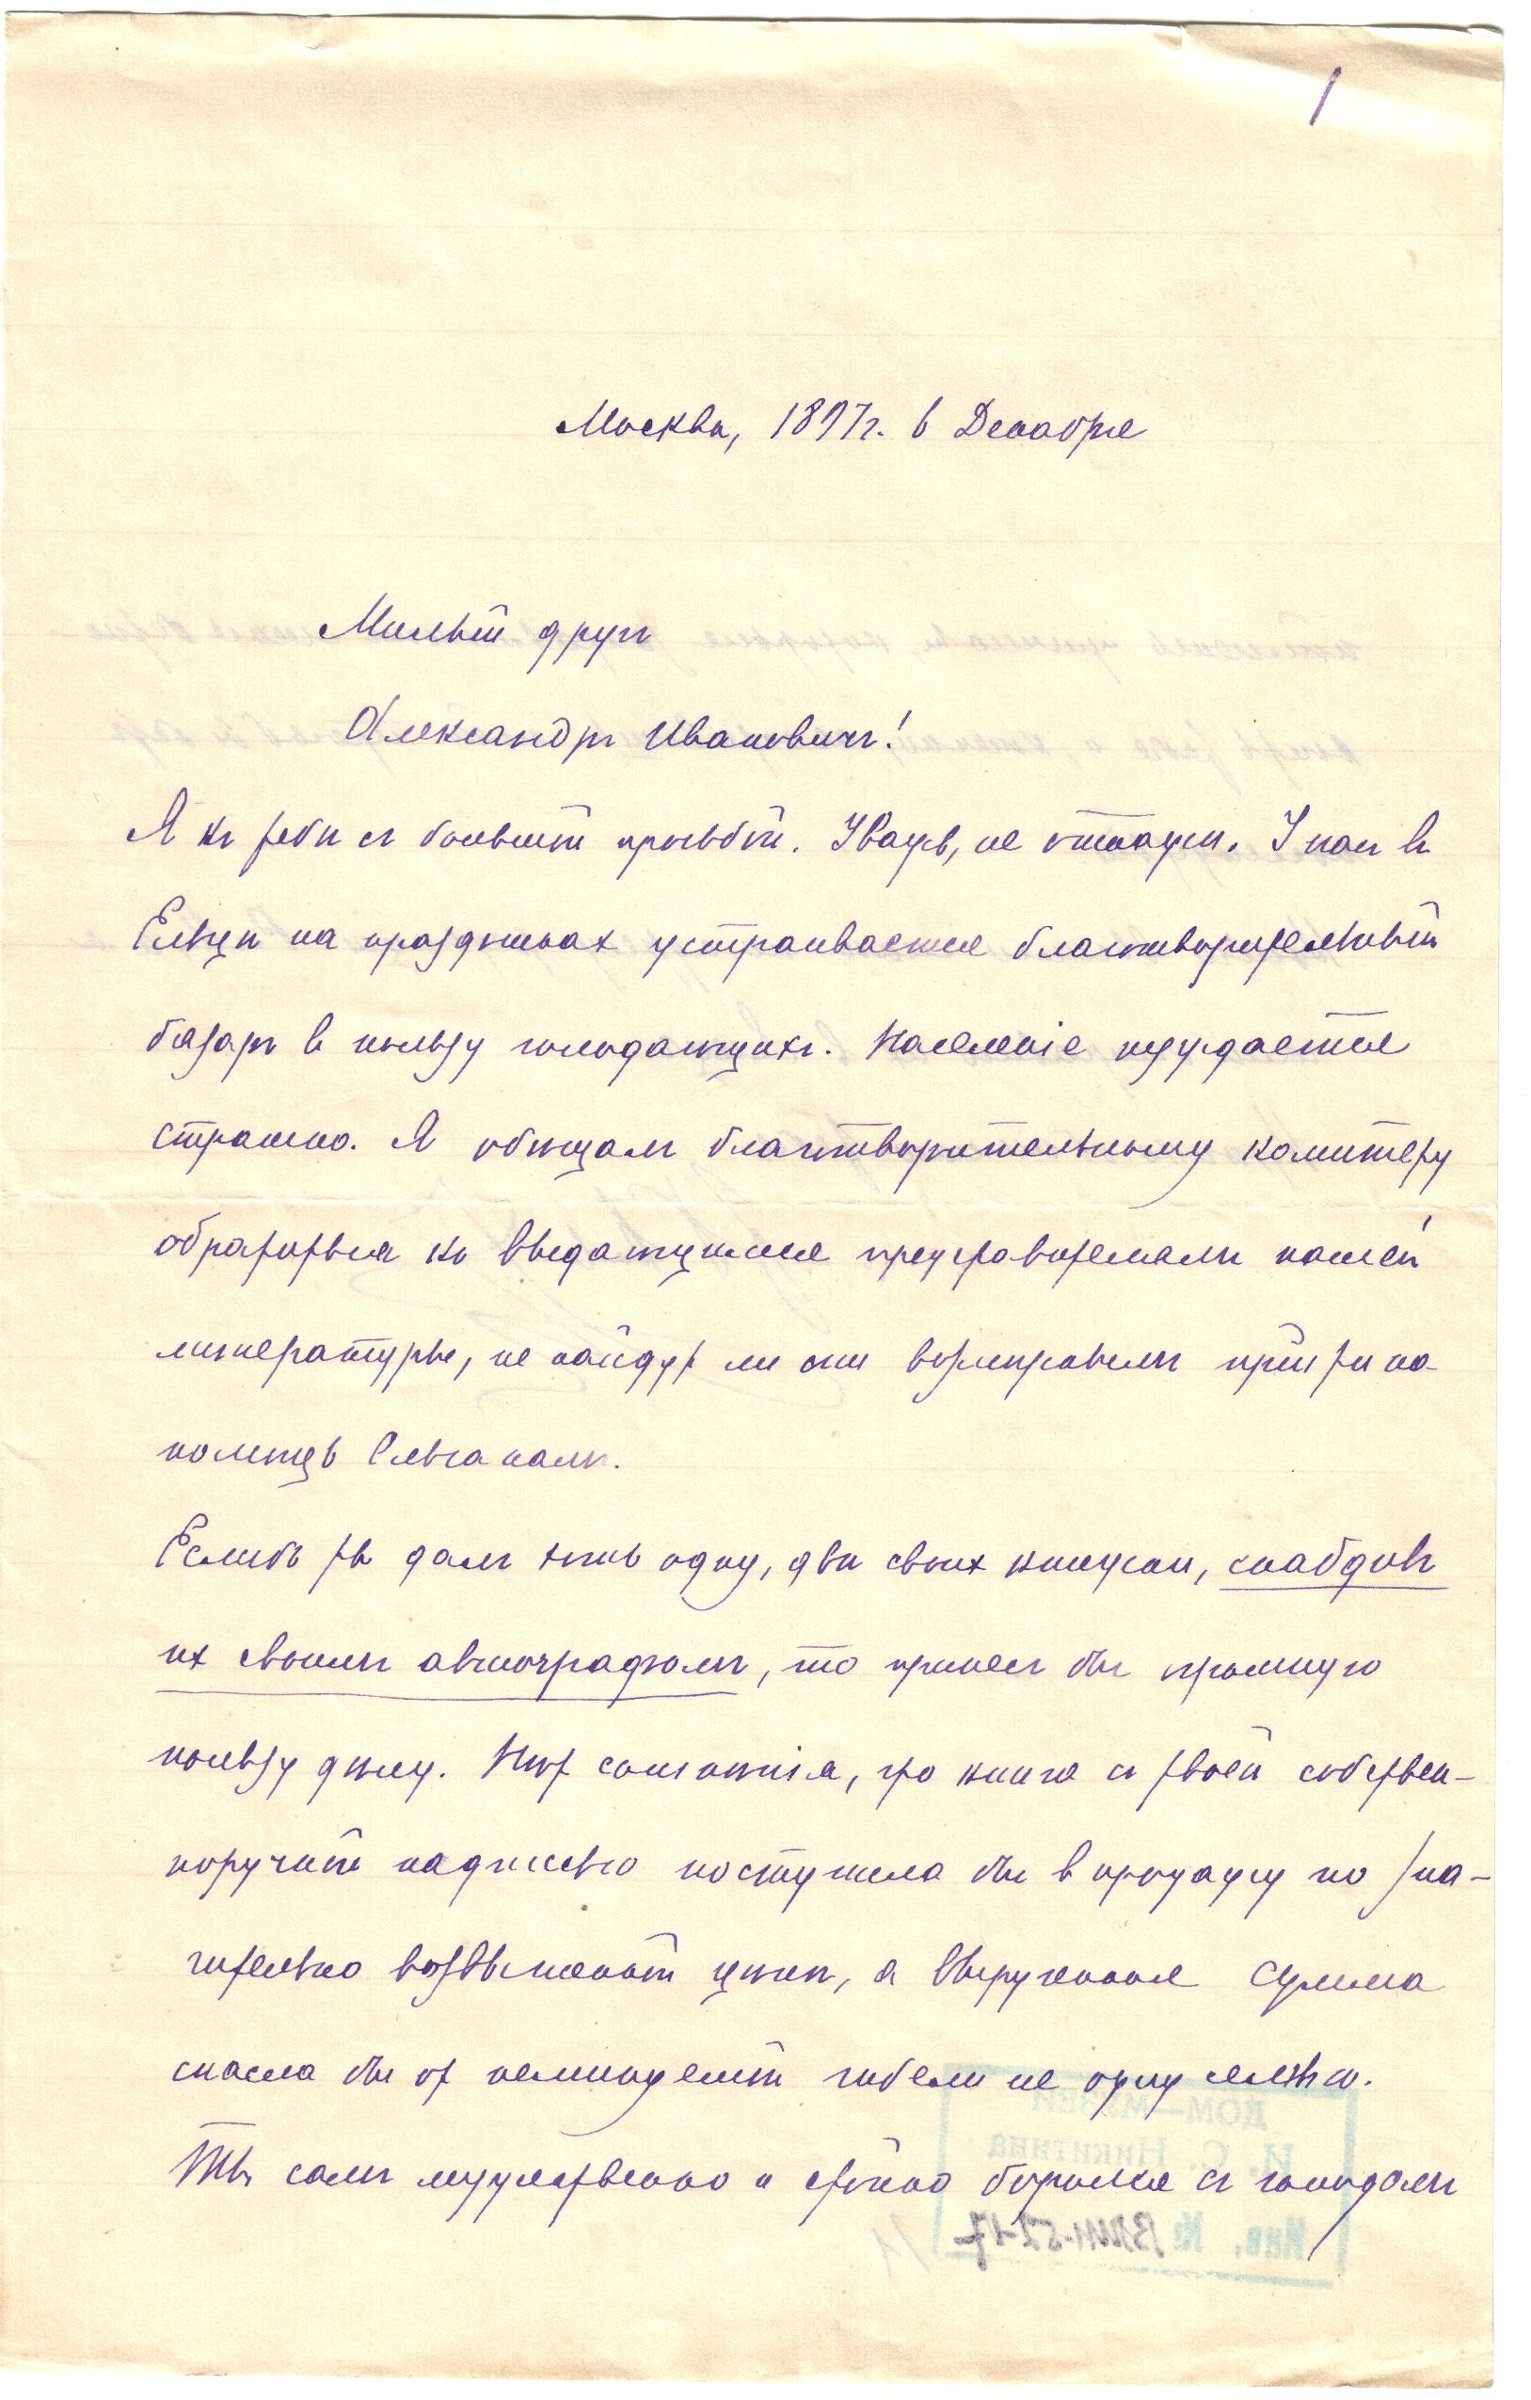 1
Москва, 1897г. в Декабре
Милый другъ
Александръ Ивановичъ!
Я къ тебѣ съ большой просьбой. Уважь, не откажи. У насъ въ
Ельцѣ на праздникахъ устраивается благотворительный
базаръ въ пользу голодающихъ. Населеніе нуждается
страшно. Я обѣщалъ благотворительному комитету
обратиться къ выдающимся представителямъ нашей
литературы, не найдутъ ли они возможнымъ прійти на
помощь Ельчанамъ.
Еслибъ ты далъ хоть одну, двѣ своихъ книжки, снабдивъ
ихъ своимъ автографомъ, то принесъ бы громадную
пользу дѣлу. Нѣтъ сомнѣнія, что книга съ твоей собствен-
норучной надписью поступила бы въ продажу по зна-
чительно возвышенной цѣнѣ, а вырученная сумма
спасла бы отъ неминуемой гибели не одну семью.
Ты самъ мужественно и стойко боролся съ голодомъ
ДОМ—МУЗЕЙ
И. С. Никитина
Инв. №